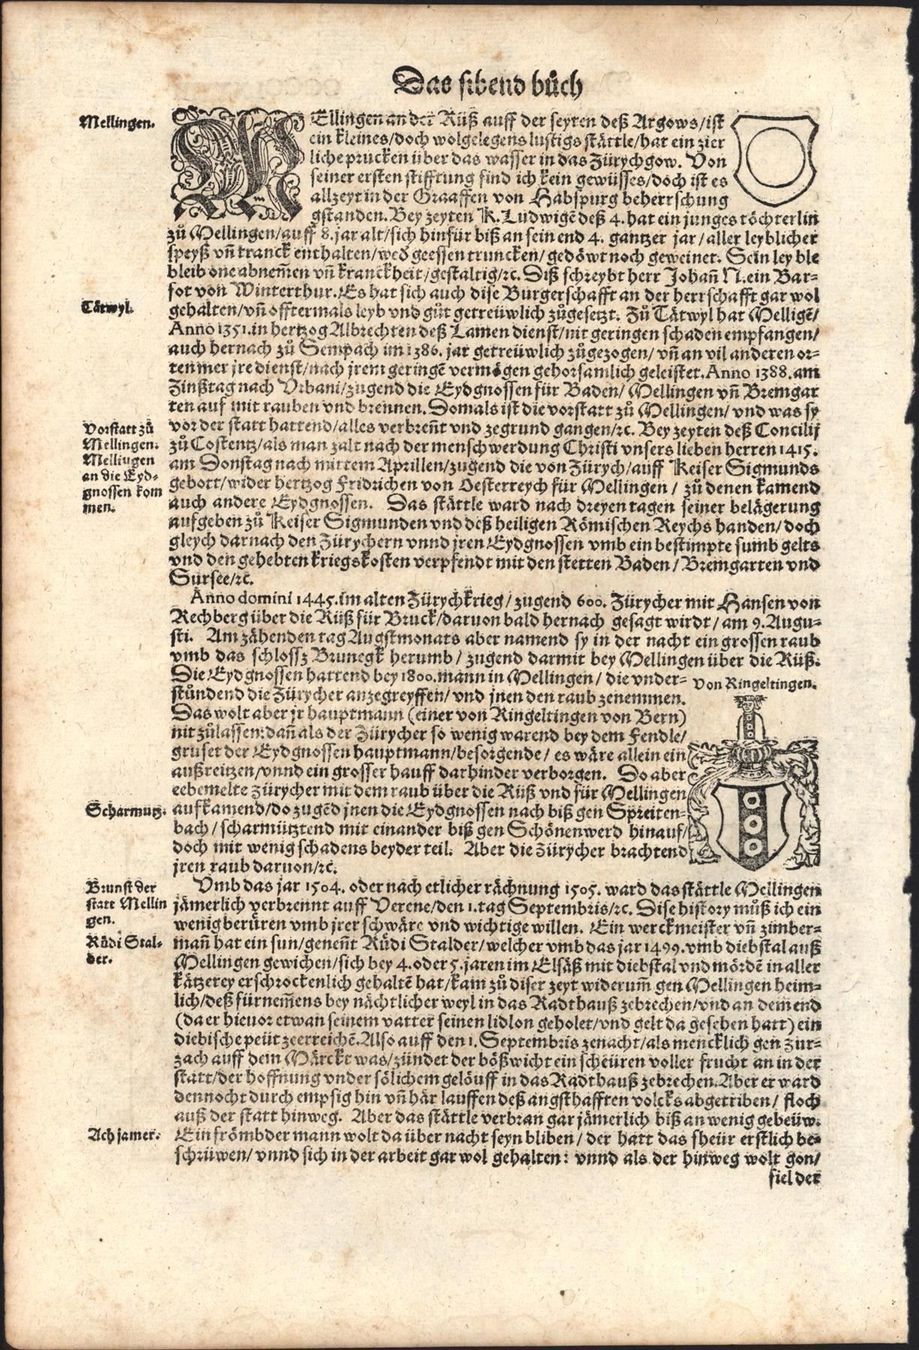 Das sibend bůch
Mellingen.
MEllingen an der Rüß auff der seyten deß Argows/ist
ein kleines/doch wolgelegens lustigs stättle/hat ein zier
liche prucken über das wasser in das Zürychgow. Von
seiner ersten stifftung find ich kein gewüsses/doch ist es
allzeyt in der Graaffen von Habspurg beherrschung
gstanden. Bey zeyten K. Ludwigẽ deß 4. hat ein junges töchterlin
zů Mellingen/auff 8. jar alt/sich hinfür biß an sein end 4. gantzer jar/aller leyblicher
speyß vñ tranck enthalten/weð geessen truncken/gedöwt noch geweinet. Sein leyb
bleib one abnem̃en vñ kranckheit/gestaltig/ꝛc. Diß schreybt herr Johañ N.ein Bar-
fot von Winterthur. Es hat sich auch dise Burgerschafft an der herrschafft gar wol
Tätwyl.
gehalten/vñ offtermals leyb vnd gůt getreüwlich zůgesetzt. Zů Tätwyl hat Melligẽ/
Anno 1351.in hertzog Albrechten deß Lamen dienst/nit geringen schaden empfangen/
auch hernach zů Sempach im 1386. jar getreüwlich zůgezogen/vñ an vil anderen or-
ten mer jre dienst/nach jrem geringẽ vermögen gehorsamlich geleistet. Anno 1388. am
Zinßtag nach Vrbani/zugend die Eydgnossen für Baden/ Mellingen vñ Bremgar
ten auf mit rauben vnd brennen. Domals ist die vorstatt zů Mellingen/ vnd was sy
Vorstatt zů
Mellingen.
Mellingen
an die Eyd-
gnossen kom
men.
vor der statt hattend/alles verbreñt vnd zegrund gangen/ꝛc. Bey zeyten deß Concilij
zů Costentz/als man zalt nach der menschwerdung Christi vnsers lieben herren 1415.
am Donstag nach mittem Aprillen/zugend die von Zürych/auff Keiser Sigmunds
gebott/wider hertzog Fridrichen von Oesterreych für Mellingen / zů denen kamend
auch andere Eydgnossen. Das stättle ward nach dreyen tagen seiner belägerung
aufgeben zů Keiser Sigmunden vnd deß heiligen Römischen Reychs handen/ doch
gleych darnach den Zürychern vnnd jren Eydgnossen vmb ein bestimpte sumb gelts
vnd den gehebten kriegskosten verpfendt mit den stetten Baden / Bremgarten vnd
Sursee/ꝛc.
Anno domini 1445.im alten Zürychkrieg / zugend 600. Zürycher mit Hansen von
Rechberg über die Rüß für Bruck/daruon bald hernach gesagt wirdt / am 9. Augu-
sti. Am zähenden tag Augstmonats aber namend sy in der nacht ein grossen raub
vmb das schlossz Brunegk herumb / zugend darmit bey Mellingen über die Rüß.
Die Eydgnossen hattend bey 1800.mann in Mellingen / die vnder-
Von Ringeltingen.
stůndend die Zürycher anzegreyffen/ vnd jnen den raub zenemmen.
Das wolt aber jr hauptmann (einer von Ringeltingen von Bern)
nit zůlassen:dañ als der Zürycher so wenig warend bey dem Fendle/
grüset der Eydgnossen hauptmann/besorgende/ es wäre allein ein
außreitzen/vnnd ein grosser hauff darhinder verborgen. Do aber
eebemelte Zürycher mit dem raub über die Rüß vnd für Mellingen
Scharmutz.
aufkamend/do zugẽd jnen die Eydgnossen nach biß gen Spreiten-
bach / scharmütztend mit einander biß gen Schönenwerd hinauf/
doch mit wenig schadens beyder teil. Aber die Zürycher brachtend
jren raub daruon/ꝛc.
Brunst der
statt Mellin
gen.
Vmb das jar 1504. oder nach etlicher rächnung 1505. ward das stättle Mellingen
jämerlich verbrennt auff Verene/den 1.tag Septembris/ꝛc. Dise history můß ich ein
wenig berüren vmb jrer schwäre vnd wichtige willen. Ein werckmeister vñ zimber-
Růdi Stal-
der.
mañ hat ein sun/geneñt Růdi Stalder/welcher vmb das jar 1499.vmb diebstal auß
Mellingen gewichen/sich bey 4.oder 5.jaren im Elsäß mit diebstal vnd mördẽ in aller
kätzerey erschrockenlich gehaltẽ hat/kam zů diser zeyt widerum̃ gen Mellingen heim-
lich/deß fürnem̃ens bey nächtlicher weyl in das Radthauß zebrechen/vnd an dem end
(da er hieuor etwan seinem vatter seinen lidlon geholet/vnd gelt da gesehen hatt) ein
diebische peüt zeerreichẽ.Also auff den 1. Septembris zenacht/als mencklich gen Zur-
zach auff dem Märckt was/zündet der bößwicht ein scheüren voller frucht an in der
statt/der hoffnung vnder sölichem gelöuff in das Radthauß zebrechen.Aber er ward
dennocht durch empsig hin vñ här lauffen deß angsthafften volcks abgetriben/ floch
auß der statt hinweg. Aber das stättle verbran gar jämerlich biß an wenig gebeüw.
Ach jamer.
Ein frömbder mann wolt da über nacht seyn bliben/ der hatt das fheür erstlich be-
schrüwen/ vnnd sich in der arbeit gar wol gehalten: vnnd als der hinweg wolt gon/
fiel der